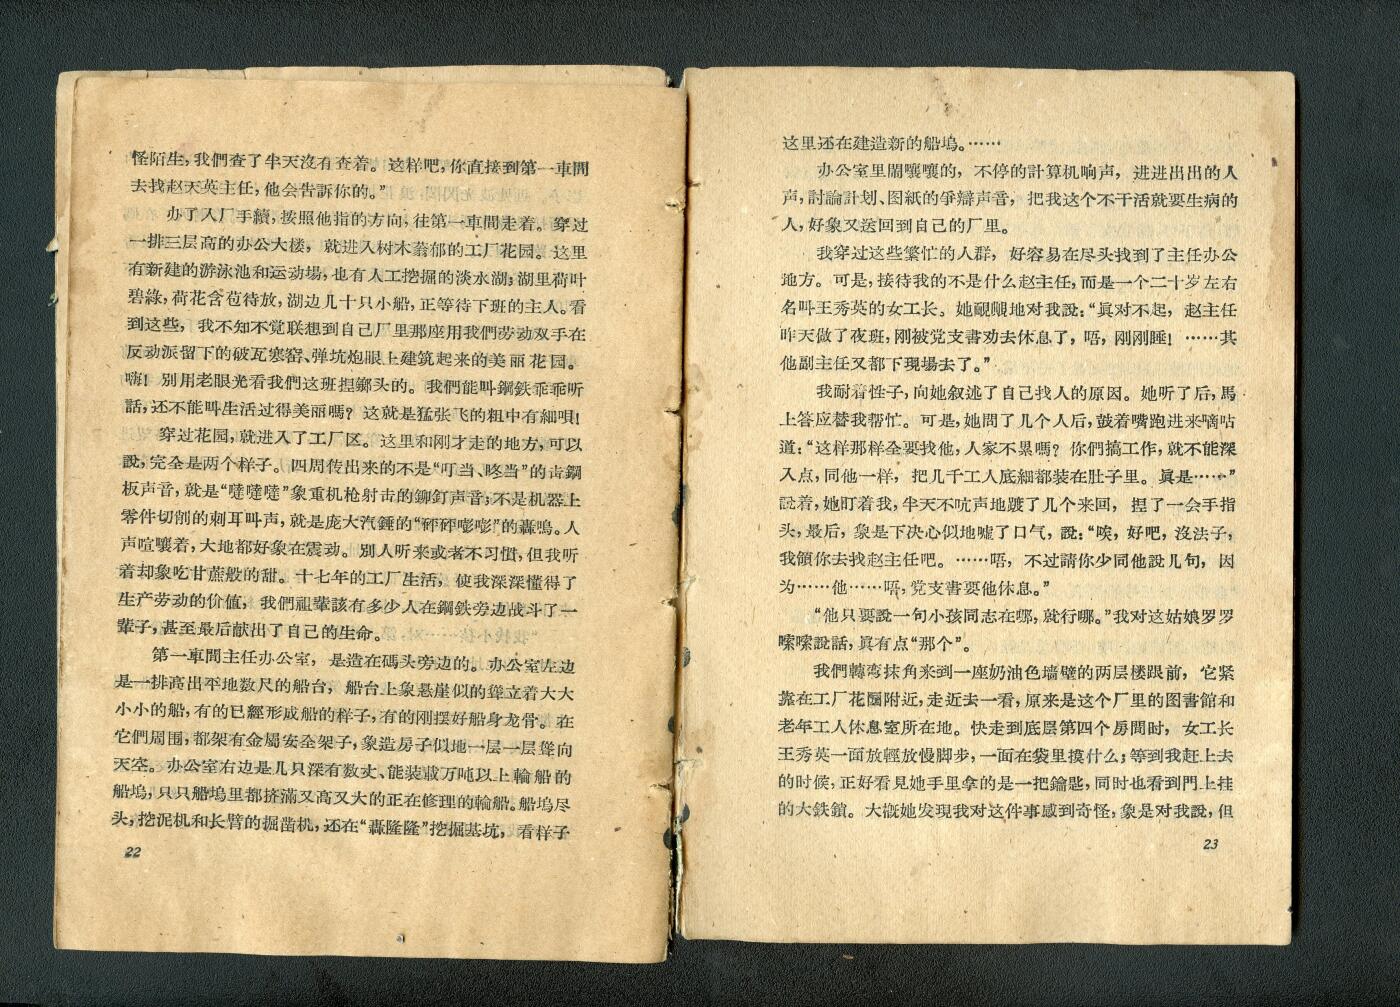 怪陌生，我們查了半天沒有查着。这样吧，你直接到第一車間
去找赵天英主任，他会告訴你的。”
办了入厂手續，按照他指的方向，往第一車間走着。穿过
一排三层高的办公大楼，就进入树木蓊郁的工厂花园。这里
有新建的游泳池和运动場，也有人工挖掘的淡水湖；湖里荷叶
碧綠，荷花含苞待放，湖边几十只小船，正等待下班的主人。看
到这些，我不知不觉联想到自己厂里那座用我們劳动双手在
反动派留下的破瓦寒窑、弹坑炮眼上建筑起来的美丽花园。
嗨！别用老眼光看我們这班捏鎯头的。我們能叫鋼鉄乖乖听
話，还不能叫生活过得美丽嗎？这就是猛张飞的粗中有細唄！
穿过花园，就进入了工厂区。这里和刚才走的地方，可以
說，完全是两个样子。四周传出来的不是“叮当、咚当”的凿鋼
板声音，就是“噠噠噠”象重机枪射击的鉚釘声音；不是机器上
零件切削的刺耳叫声，就是庞大汽錘的“砰砰嘭嘭”的轟鳴。人
声喧嚷着，大地都好象在震动。別人听来或者不习慣，但我听
着却象吃甘蔗般的甜。十七年的工厂生活，使我深深懂得了
生产劳动的价值，我們祖輩該有多少人在鋼鉄旁边战斗了一
輩子，甚至最后献出了自己的生命。
第一車間主任办公室，是造在碼头旁边的。办公室左边
是一排高出平地数尺的船台，船台上象悬崖似的聳立着大大
小小的船，有的已經形成船的样子，有的刚摆好船身龙骨。在
它們周围，都架有金屬安全架子，象造房子似地一层一层聳向
天空。办公室右边是几只深有数丈、能装載万吨以上輪船的
船塢，只只船塢里都挤滿又高又大的正在修理的輪船。船塢尽
头，挖泥机和长臂的掘凿机，还在“轟隆隆”挖掘基坑，看样子
22
这里还在建造新的船塢。……
办公室里鬧嚷嚷的，不停的計算机响声，进进出出的人
声，討論計划、图紙的爭辯声音，把我这个不干活就要生病的
人，好象又送回到自己的厂里。
我穿过这些繁忙的人群，好容易在尽头找到了主任办公
地方。可是，接待我的不是什么赵主任，而是一个二十岁左右
名叫王秀英的女工长。她靦覥地对我說：“眞对不起，赵主任
昨天做了夜班，刚被党支書劝去休息了，唔，刚刚睡！……其
他副主任又都下現場去了。”
我耐着性子，向她叙述了自己找人的原因。她听了后，馬
上答应替我帮忙。可是，她問了几个人后，鼓着嘴跑进来嘀咕
道：“这样那样全要找他，人家不累嗎？你們搞工作，就不能深
入点，同他一样，把几千工人底細都装在肚子里。眞是……”
說着，她盯着我，半天不吭声地踱了几个来回，捏了一会手指
头，最后，象是下决心似地嘘了口气，說：“唉，好吧，沒法子，
我領你去找赵主任吧。……唔，不过請你少同他說几句，因
为……他……唔，党支書要他休息。”
“他只要說一句小孩同志在哪，就行哪。”我对这姑娘罗罗
嗦嗦說話，眞有点“那个”。
我們轉弯抹角来到一座奶油色墙壁的两层楼跟前，它紧
靠在工厂花園附近，走近去一看，原来是这个厂里的图書館和
老年工人休息室所在地。快走到底层第四个房間时，女工长
王秀英一面放輕放慢脚步，一面在袋里摸什么；等到我赶上去
的时候，正好看見她手里拿的是一把鑰匙，同时也看到門上挂
的大鉄鎖。大槪她发现我对这件事感到奇怪，象是对我說，但
23